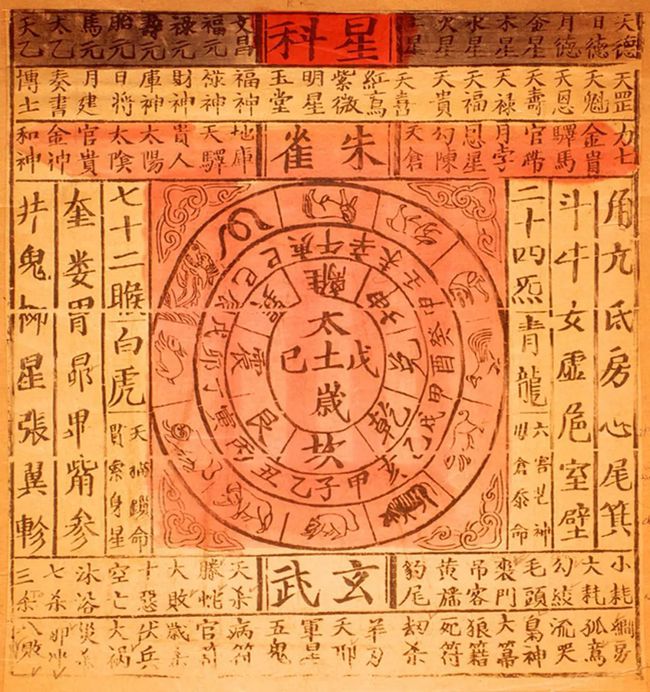 星科
天德 日德 月德 金星 木星 水星 火星 土星
文昌 福元 祿元 壽元 胎元 馬元 太乙 天乙
天罡 天魁 天恩 天壽 天祿 天福 天貴 天喜 紅鸞 紫微 明星 玉堂 福神 祿神 財神 庫神 日將 月建 奏書 博士
力士 金貴 驛馬 官帶 月孛 恩星 勾陳 天倉
朱雀
地庫 天驛 貴人 太陽 太陰 官貴 金神 和神
角亢氐房心尾箕
斗牛女虛危室壁
二十四炁青龍
六害芒神
太土歲
戊
己
離坤兌乾坎艮震巽
午辛未坤申癸酉甲戌乙亥甲子乙丑丙寅丁卯戊辰己巳庚
七十二睺白虎
奎婁胃昴畢觜參
井鬼柳星張翼軫
小耗 大耗 勾絞 毛頭 喪門 吊客 黃旛 豹尾
玄武
天杀 騰蛇 大敗 十惡 空亡 沐浴 七杀 三杀
孤鸞 流哭 梟神 狼籍 死符 劫杀 羊刃 軍星 五鬼 病符 官符 歲杀 伏兵 大禍 災杀 八敗